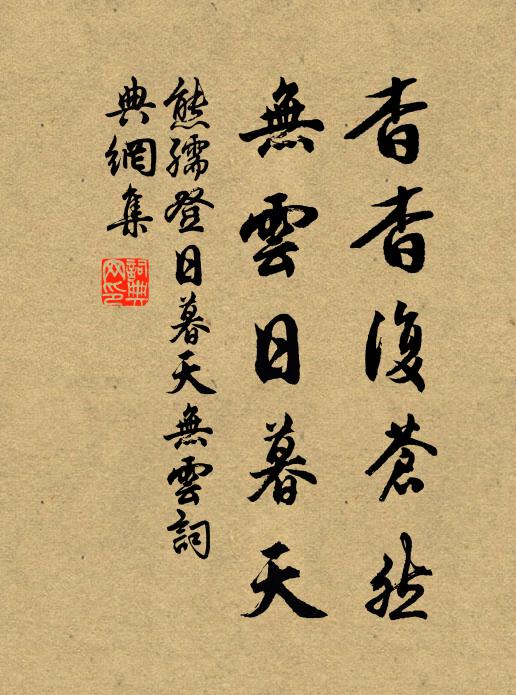 杳杳復蒼然
無雲日暮天
熊孺登日暮天無雲詞
典網集
詞典
网印